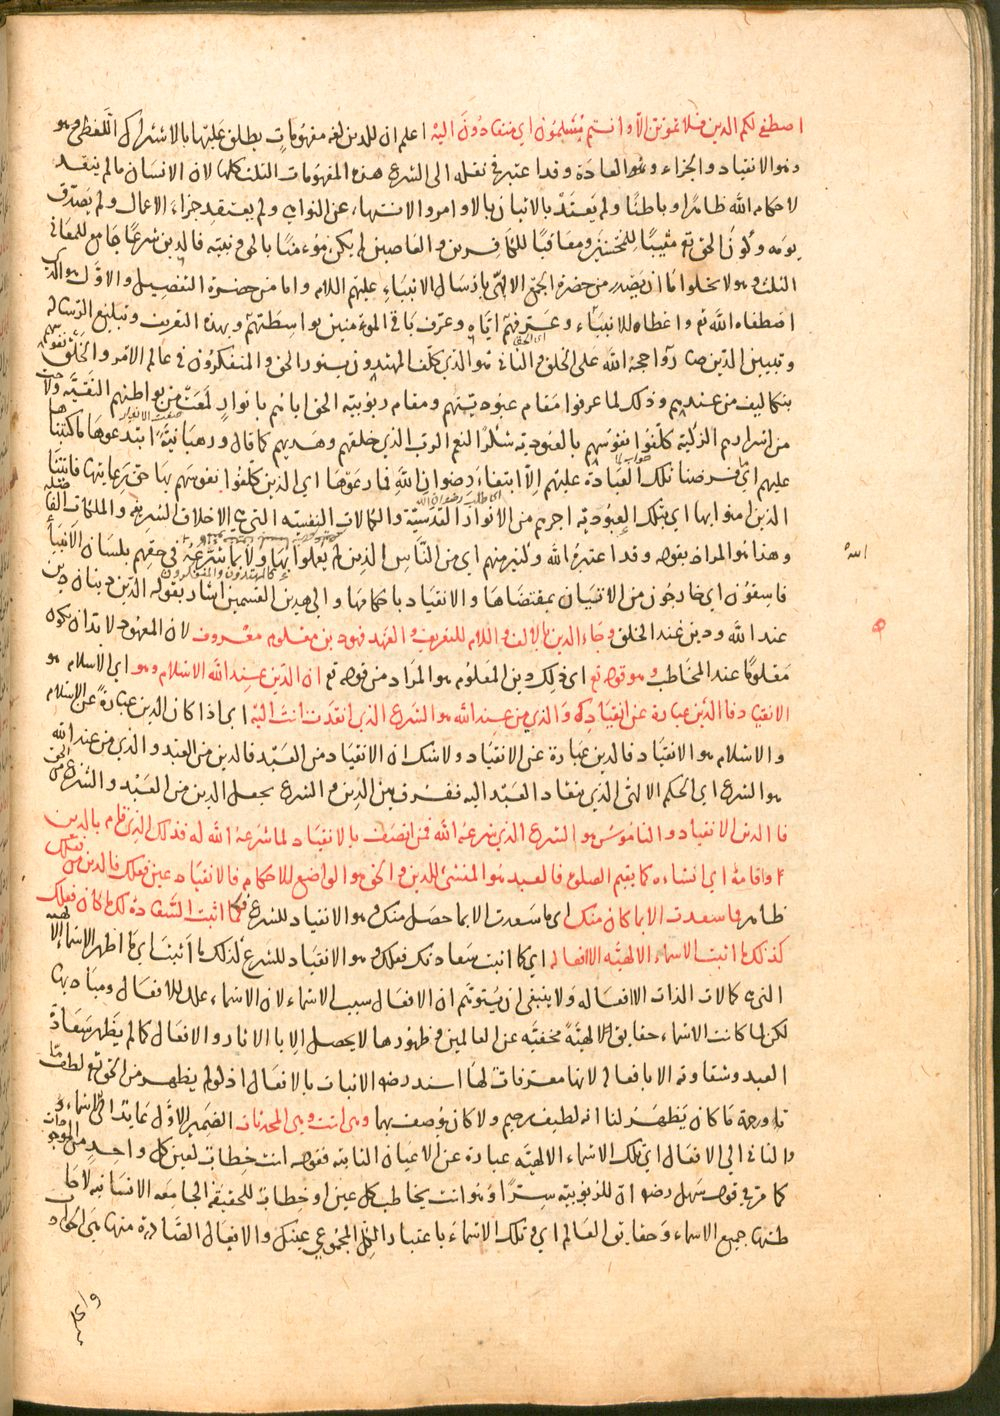 اصطفى لكم الدين فلا تموتن الا وانتم مسلمون اى منقادون اليه اعلم ان للدين لغة مفهومات يطلق عليها بالاشتراك اللفظى وهو
وهو الانقياد والجزاء والعادة وقد اعتبر فى نقله الى الشرع هذه المفهومات الثلث كلها لان الانسان ما لم ينقد
لاحكام الله ظاهرا وباطنا ولم يعتد بالاتيان بالاوامر والانتهاء عن النواهى ولم يعتقد جزاء الاعمال ولم يصدق
يومه وكون الحق تع مثيبا للمحسنين ومعاقبا للكافرين والعاصين لم يكن مؤمنا بالحق ونبيه فالدين شرعا جامع للمعانى
الثلث وهو لا يخلوا ما ان يصدر من حضرة الجمع الالهى بارسال الانبياء عليهم السلام واما من حضرة التفصيل والاول هو الذى
اصطفاه الله تع واعطاه للانبياء وعرفهم اياه وعرف باقى المؤمنين بواسطتهم وبهذه التعريف وتبليغ الرسالة
وتبيين الدين صاروا حجة الله على الخلق والثانى هو الذى كلف المهتدون بنور الحق والمتفكرون فى عالم الامر والخلق نفوسهم
بتكاليف من عندهم وذلك لما عرفوا مقام عبوديتهم ومقام ربوبية الحق اياهم بانوار لمعت من بواطنهم النقية ولاحت
من اسرارهم الزكية كلفوا نفوسهم بالعبودية شكرا لنعم الرب الذى خلقهم وهديهم كما قال ورهبانية ابتدعوها ما كتبناها
عليهم اى ما فرضنا تلك العبادة عليهم الا ابتغاء رضوان الله فما رعوها اى الذين كلفوا نفوسهم بها حق رعايتها فاتينا
الذين امنوا بها اى بتلك العبودية اجرهم من الانوار القدسية والكمالات النفسية التى هى الاخلاق الشريفة والملكات الفاضلة
وهذا هو المراد بقوله وقد اعتبره الله وكثير منهم اى من الناس الذين لم يعملوا بها ولا بما شرعه فى حقهم بلسان الانبياء
فاسقون اى خارجون من الاتيان بمقتضاها والانقياد باحكامها والى هذين القسمين اشار بقوله الدين دينان دين
عند الله ودين عند الخلق وجاء الدين بالالف واللام للتعريف والعهد فهو دين معلوم معروف لان المعهود لا بد ان يكون
معلوما عند المخاطب وهو قوله تع اى ذلك دين المعلوم هو المراد من قوله تع ان الدين عند الله الاسلام وهو اى الاسلام هو
الانقياد فالدين عبارة عن انقيادك والذى من عند الله هو الشرع الذى انقدت انت اليه اى اذا كان الدين عبارة عن الاسلام
والاسلام هو الانقياد فالدين عبارة عن الانقياد ولا شك ان الانقياد من العبد فالدين من العبد والذى من عند الله
هو الشرع اى الحكم الالهى الذى ينقاد العبد اليه ففرق بين الدين والشرع بجعل الدين من العبد والشرع من الحق
فالدين الانقياد والناموس هو الشرع الذى شرعه الله فمن اتصف بالانقياد لما شرعه الله له فذلك الذى قام بالدين
واقامه اى انشاءه كما يقيم الصلوة فالعبد هو المنشئ للدين والحق هو الواضع للاحكام فالانقياد عين فعلك فالدين من فعلك
ظاهر فما سعدت الا بما كان منك اى ما سعدت الا بما حصل منك وهو الانقياد للشرع فكما اثبت السعادة لك ما كان فعلك
كذلك ما اثبت الاسماء الالهية الا افعاله اى كما اثبت سعادتك فعلك وهو الانقياد للشرع كذلك ما اثبت اى ما اظهر الاسماء الالهية
التى هى كمالات الذات الا افعاله ولا ينبغى ان يتوهم ان الافعال سبب الاسماء لان الاسماء علل للافعال ومباديها
لكن لما كانت الاسماء حقايق الالهية مخفية عن العالمين وظهورها لا يحصل الا بالاثار والافعال كما لم يظهر سعادة
العبد وشقاوته الا بافعاله لانها معرفات لها اسند رضه الاثبات بالافعال اذ لو لم يظهر من الحق تع لطف ما
او رحمة ما كان يظهر لنا انه لطيف رحيم ولا كان يوصف بهما وهى انت وهى المحدثات الضمير الاول عايد الى الاسماء
والثانى الى الافعال اى تلك الاسماء الالهية عبارة عن الاعيان الثابتة فقوله انت خطاب لعين كل واحد من الموجودات
كما مر فى قول سهل رضه ان للربوبية سرا وهو انت يخاطب كل عين او خطاب للحقيقة الجامعة الانسانية لاحا
طتها جميع الاسماء وحقايق العالم اى تلك الاسماء باعتبار الكل المجموعى عينك والافعال الصادرة منها هى الحوادث
الله